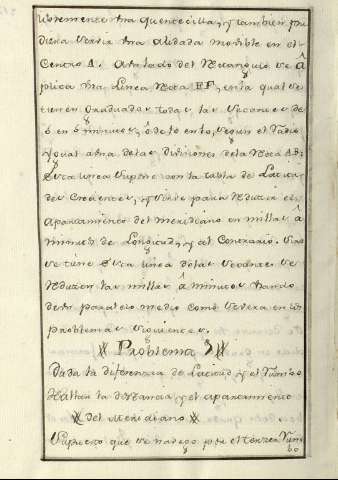 libremente una quentecilla, y tambien pu
diera servir una Alidada movible en el
Centro A. A un lado del Rectangulo se â
plica una Linea Recta EF, en la qual se
tienen Graduadas todas las Secantes de
5 en 5 minutos, ô de 10 en 10, segun el Radio
ygual a una de las Divisiones de la Recta AD,
esta linea suple con la tabla de Latitu
des Crecientes, y sirve para Reduzir el
Apartamiento del meridiano en millas â
minutos de Longitud, y al Contrario. Si no
se tiene esta linea de las Secantes se
Reduzen las millas â minutos usando
del paralelo medio como se vera en los
problemas siguientes.
Problema
Dada la diferencia de Latitud y el Rumbo
Hallar la distancia y el apartamiento
del Meridiano
Supuesto que se navegó por el tercer Rum
bo